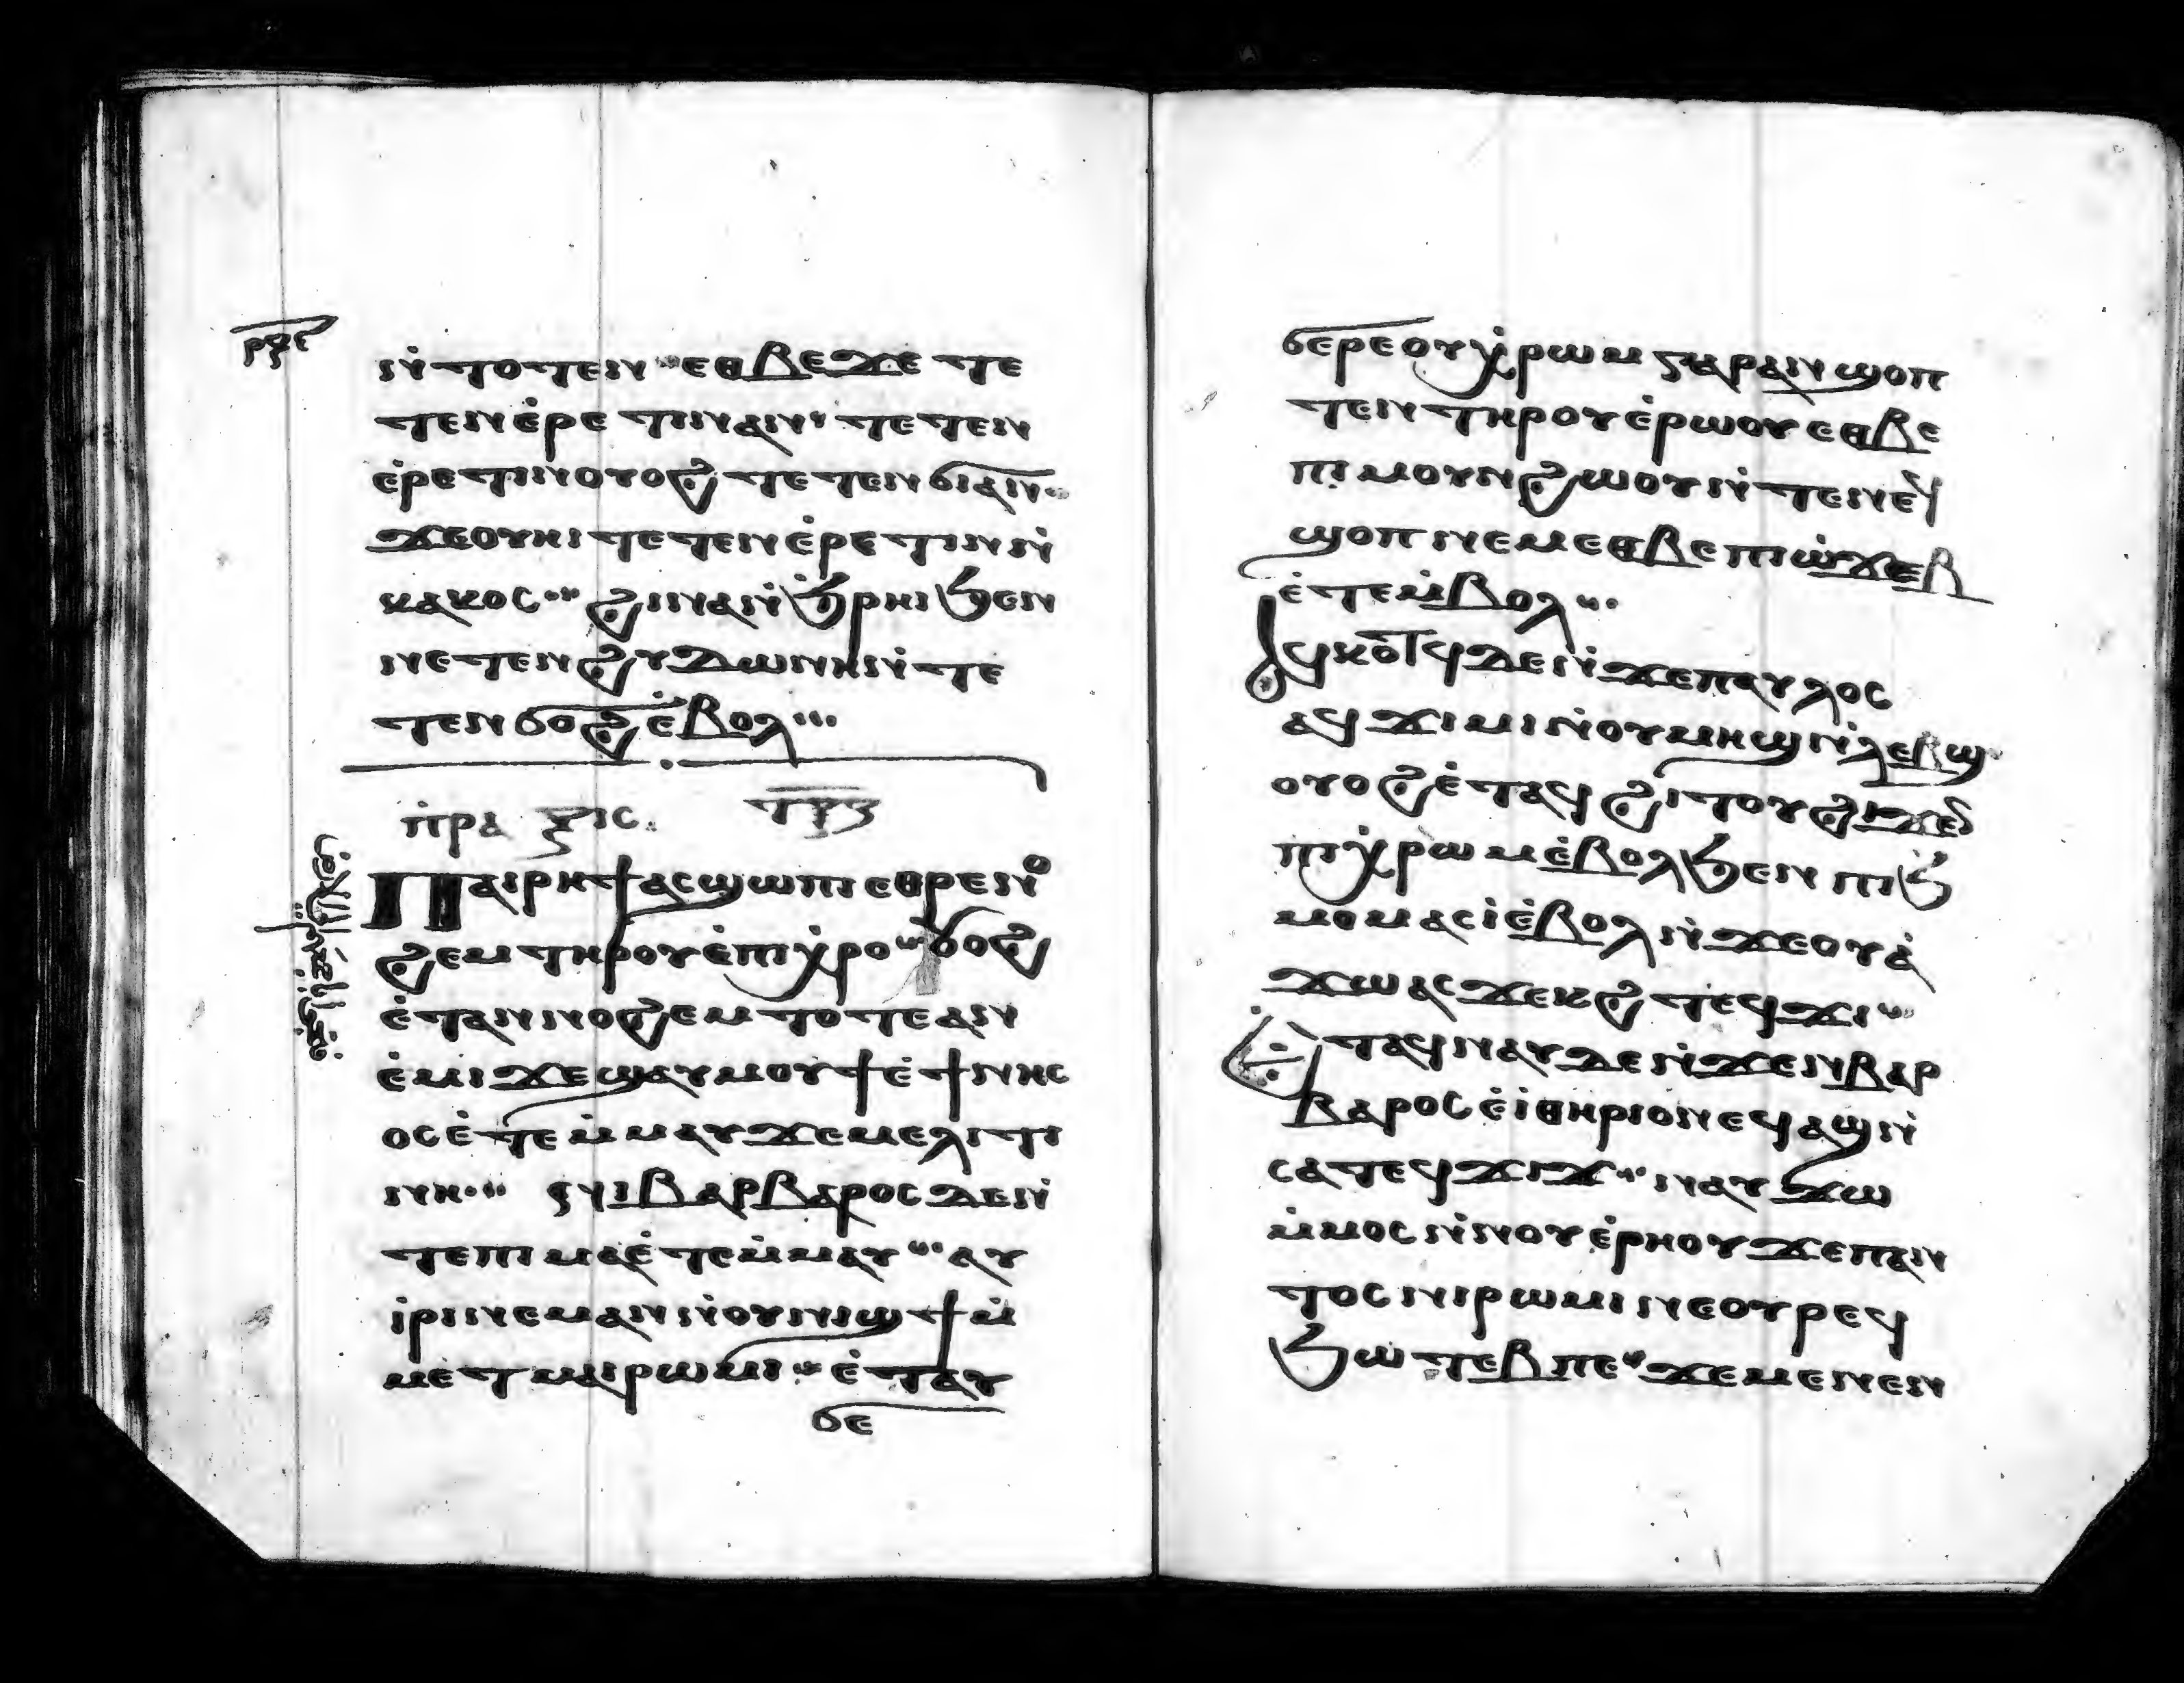 ⲣⲝⲉ
ⲛ̇ⲧⲟⲧⲉⲛ ⲉⲑⲃⲉϫⲉ ⲧⲉ
ⲧⲉⲛⲉ̇ⲣⲉ ⲧⲓⲛⲁⲛ ⲧⲉⲧⲉⲛ
ⲉ̇ⲣⲉⲧⲓⲛⲟⲩⲟϩ ⲧⲉⲧⲉⲛϭⲓⲁⲛ
ϫⲉⲟⲩⲏⲓ ⲧⲉⲧⲉⲛⲉ̇ⲣⲉⲧⲓⲛⲛ̇
ⲕⲁⲕⲟⲥ ϩⲓⲛⲁⲛ̇ϧ̇ⲣⲏⲓϧⲉⲛ
ⲛⲉⲧⲉⲛϩⲩⲇⲱⲛⲏⲛ̇ⲧⲉ
ⲧⲉⲛϭⲟϩⲉ̇ⲃⲟⲗ
ⲡ̇ⲣⲁⲝⲓⲥ
ⲡⲁⲓⲣⲏϯⲁⲥϣⲱⲡⲓⲉⲑⲣⲉⲛ̇ⲟ
ϩⲉⲙⲧⲏⲣⲟⲩⲉ̇ⲡⲓⲭ̇ⲣⲟ ⲟⲩⲟϩ
ⲉ̇ⲧⲁⲛⲛⲟϩⲉⲙⲧⲟⲧⲉⲁⲛ
ⲉ̇ⲙⲓϫⲉϣⲁⲩⲙⲟⲩϯⲉ̇ϯⲛⲏⲥ
ⲟⲥⲉ̇ⲧⲉⲙ̇ⲙⲁⲩϫⲉⲙⲉⲗⲓⲧⲓ
ⲛⲏ ⲛⲓⲃⲁⲣⲃⲁⲣⲟⲥⲇⲉⲛ̇
ⲧⲉⲡⲓⲙⲁⲉ̇ⲧⲉⲙ̇ⲙⲁⲩ ⲁⲩ
ⲓ̇ⲣⲓⲛⲉⲙⲁⲛⲛ̇ⲟⲩⲛⲓϣϯⲙ̇
ⲙⲉⲧⲙⲁⲓⲣⲱⲙⲓ ⲉ̇ⲧⲁⲩ
ϭⲉ
ϭⲉⲣⲉⲟⲩⲭ̇ⲣⲱⲙ ⲅⲁⲣⲁⲛϣⲟⲡ
ⲧⲉⲛⲧⲏⲣⲟⲩⲉ̇ⲣⲱⲟⲩⲉⲑⲃⲉ
ⲡⲓⲙⲟⲩⲛϩⲱⲟⲩⲛ̇ⲧⲉⲛⲉϥ
ϣⲟⲡⲛⲉⲙⲉⲑⲃⲉⲡⲓⲱ̇ϫⲉⲃ
ⲉ̇ⲧⲉⲙ̇ⲃⲟⲗ
ⲁϥⲕⲟⲧϥⲇⲉⲛ̇ϫⲉⲡⲁⲩⲗⲟⲥ
ⲁϥϫⲓⲙⲓⲛ̇ⲟⲩⲙⲏϣⲛ̇ⲗⲉⲃϣ
ⲟⲩⲟϩⲉ̇ⲧⲁϥϩⲓⲧⲟⲩϩⲓϫⲉⲛ
ⲡⲓⲭ̇ⲣⲱⲙⲉ̇ⲃⲟⲗϧⲉⲛⲡⲓϧ
ⲙⲟⲙⲁⲥⲓ̇ⲉ̇ⲃⲟⲗⲛ̇ϫⲉⲟⲩⲁ̇
ϫⲱⲁⲥϫⲉⲕϩ ⲧⲉϥϫⲓ
ⲉ̇ⲧⲁϥⲛⲁⲩⲇⲉⲛ̇ϫⲉⲛⲃⲁⲣ
ⲃⲁⲣⲟⲥⲉ̇ⲓ̇ⲑⲏⲣⲓⲟⲛⲉϥⲁϣⲛ̇
ⲥⲁⲧⲉϥϫⲓϫ ⲛⲁⲩϫⲱ
ⲙ̇ⲙⲟⲥⲛ̇ⲛⲟⲩⲉ̇ⲣⲏⲟⲩϫⲉⲡⲁⲛ
ⲧⲟⲥⲛⲓⲣⲱⲙⲓⲛⲉⲟⲩⲣⲉϥ
ϧⲱⲧⲉⲃⲡⲉ ϫⲉⲙⲉⲛⲉⲛ